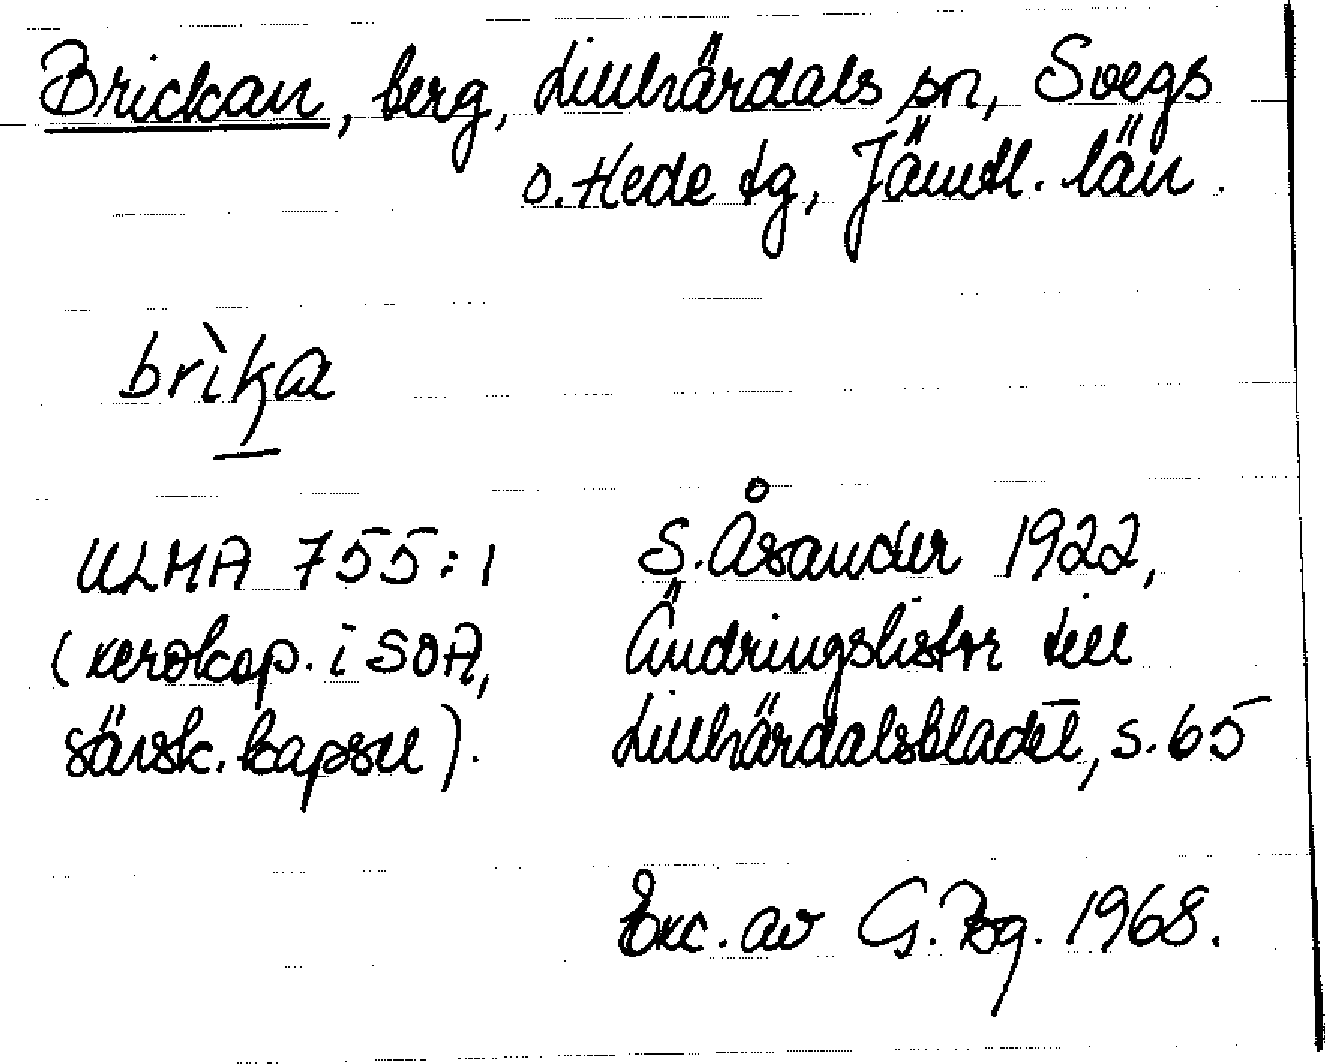 Brickan, berg, Lillhärdals sn, Svegs
o. Hede tg, Jämtl. län.
brìka
ULMA 755:1
(xerokop. i SOA,
särsk. kapsel).
S. Åsander 1922,
Ändringslistor till
Lillhärdalsbladet, s. 65
Exc. av G. Bg. 1968.